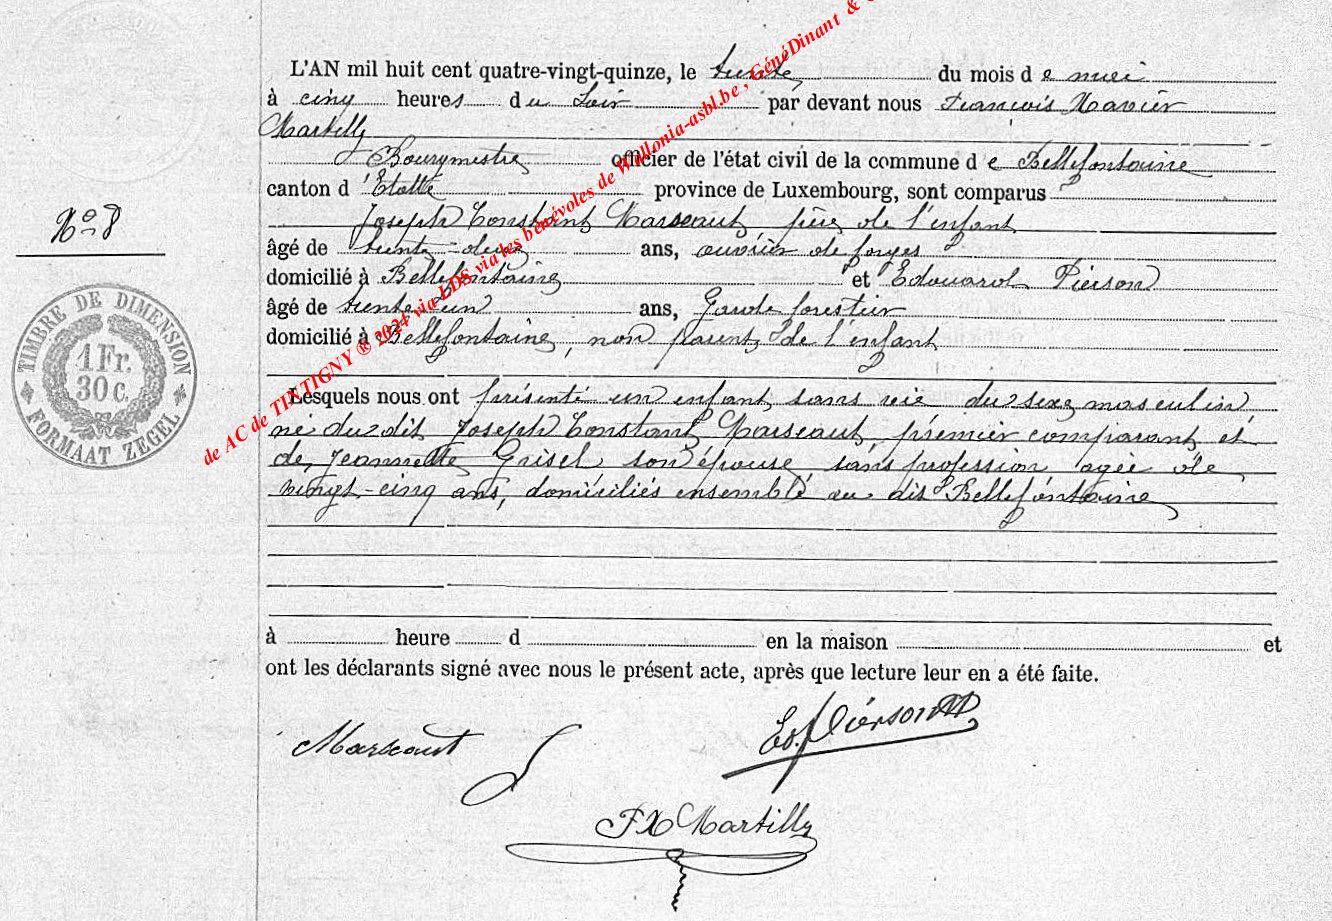 L'AN mil huit cent quatre-vingt-quinze, le trente du mois de mai
à cinq heures du soir par devant nous François Xavier
Martilly
Bourgmestre officier de l'état civil de la commune de Bellefontaine
canton d'Etalle province de Luxembourg, sont comparus
Joseph Constant Marscaut, père de l'enfant
âgé de trente-deux ans, ouvrier de forges
domicilié à Bellefontaine et Edouard Pierson
âgé de trente un ans, Garde forestier
domicilié à Bellefontaine, non parent de l'enfant
Lesquels nous ont présenté un enfant sans vie du sexe masculin
né du dit Joseph Constant Marscaut, premier comparant, et
de Jeannette Grisel son épouse, sans profession agée de
vingt-cinq ans, domiciliés ensemble au dit Bellefontaine
à heure d en la maison et
ont les déclarants signé avec nous le présent acte, après que lecture leur en a été faite.
Marscaut
Ed. Pierson
FX Martilly
N° 8
TIMBRE DE DIMENSION
1 Fr.
30 c.
FORMAAT ZEGEL
de AC de TINTIGNY ® 2024 via LDS via les bénévoles de Wallonia-asbl.be , GénéDinant &